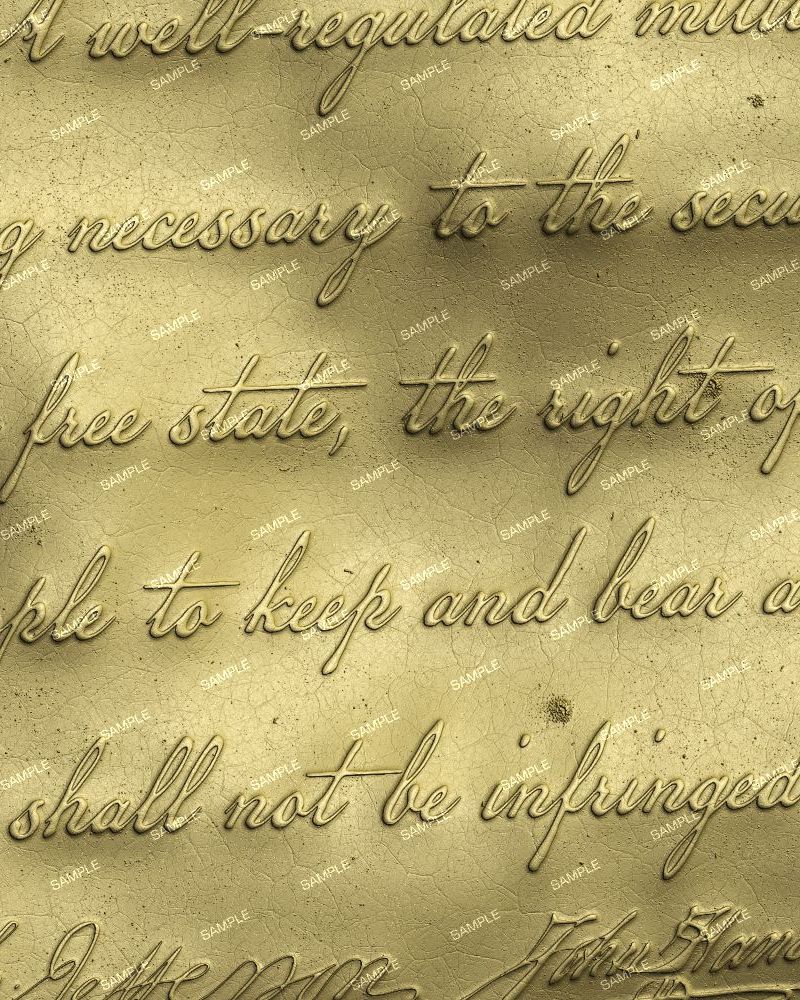 A well-regulated mili
g necessary to the secu
free state, the right of
ple to keep and bear a
shall not be infringed
Jefferson John Han
SAMPLE